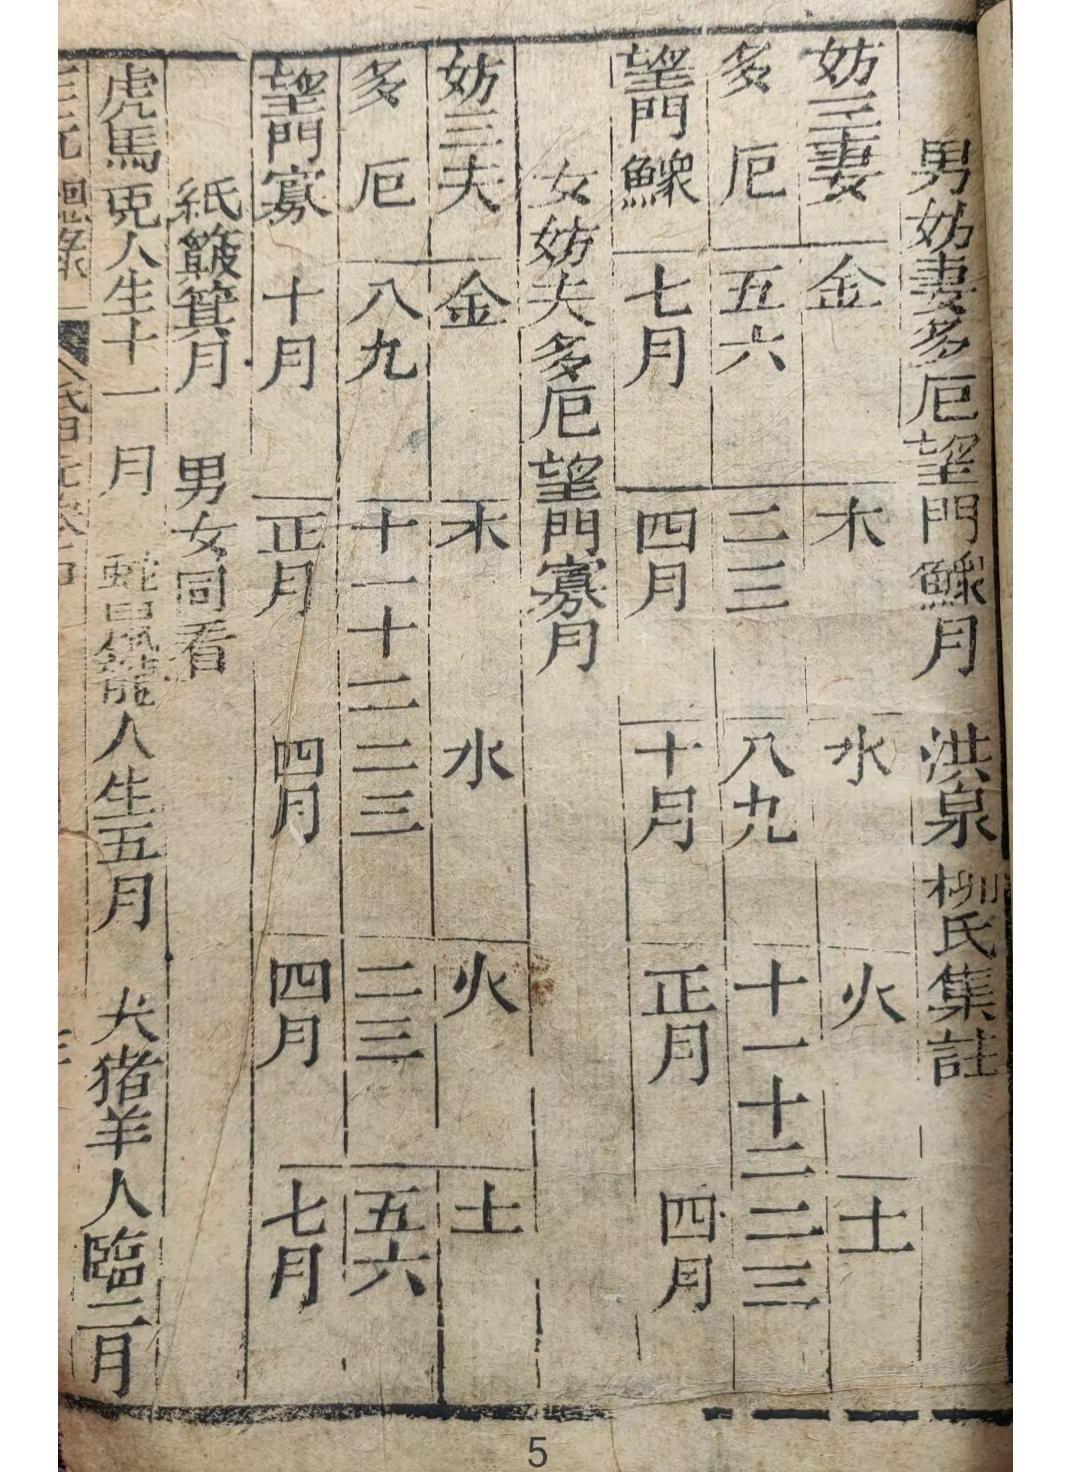 男妨妻多厄望門鰥月 洪泉 柳氏集註
妨三妻 金 木 水 火 土
多厄 五六 二三 八九 十一十二 二三
望門鰥 七月 四月 十月 正月 四月
女妨夫多厄望門寡月
妨三夫 金 木 水 火 土
多厄 八九 十一十二 二三 二三 五六
望門寡 十月 正月 四月 四月 七月
紙簸箕月 男女同看
虎馬兎人生十一月 蛇鼠龍人生五月 犬猪羊人臨二月
5